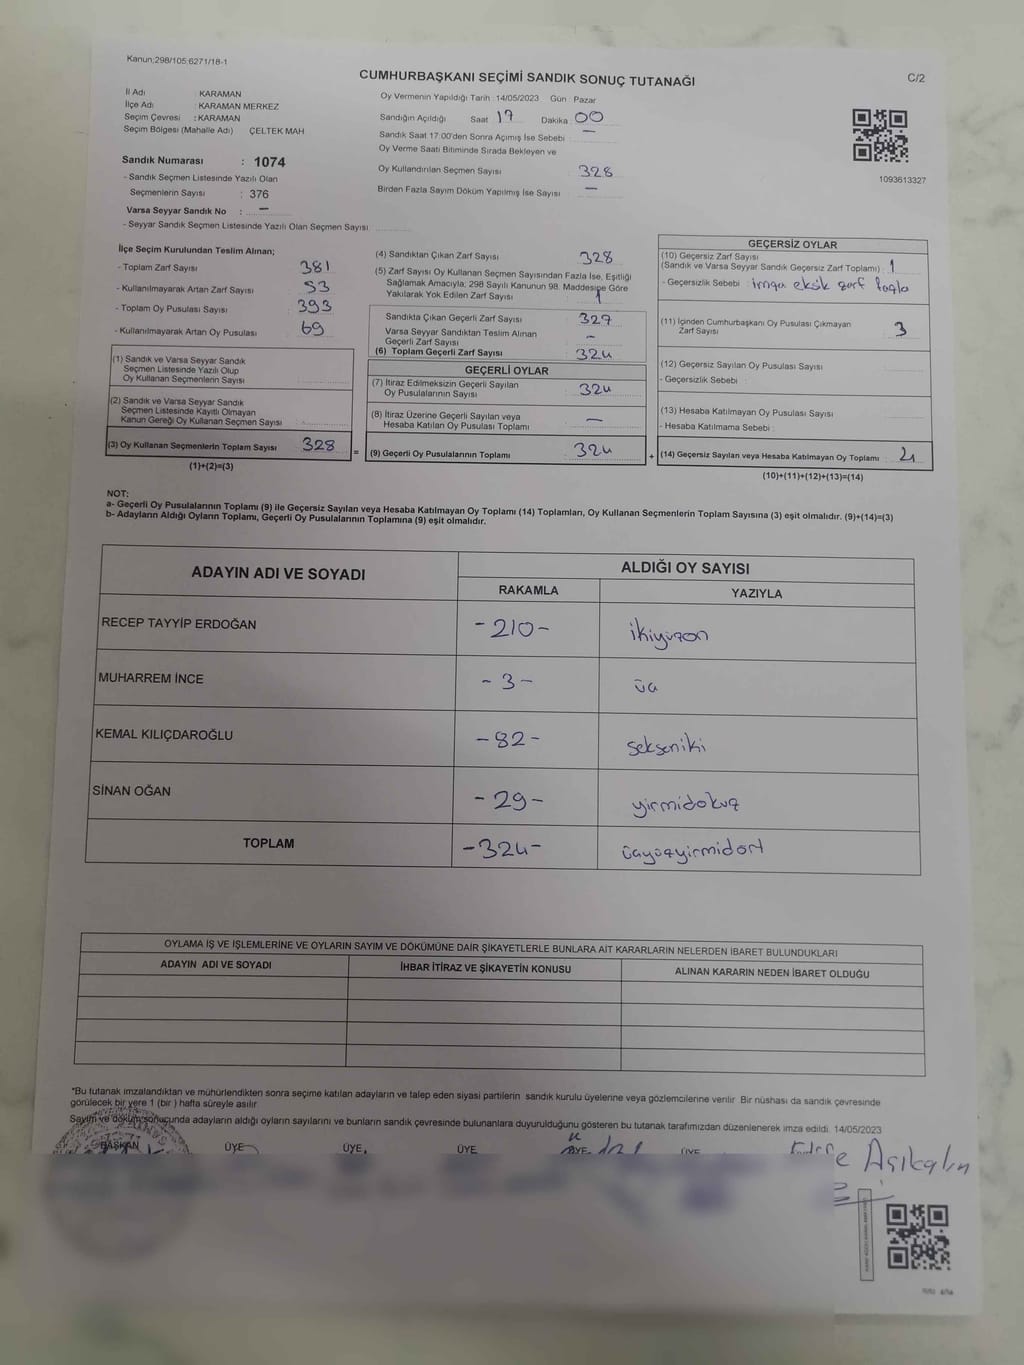 Kanun;298/105;6271/18-1
CUMHURBAŞKANI SEÇİMİ SANDIK SONUÇ TUTANAĞI
C/2
İl Adı : KARAMAN
İlçe Adı : KARAMAN MERKEZ
Seçim Çevresi : KARAMAN
Seçim Bölgesi (Mahalle Adı) ÇELTEK MAH
Oy Vermenin Yapıldığı Tarih : 14/05/2023 Gün : Pazar
Sandığın Açıldığı Saat 17 Dakika 00
Sandık Saat 17:00'den Sonra Açımış İse Sebebi : —
Oy Verme Saati Bitiminde Sırada Bekleyen ve
Oy Kullandırılan Seçmen Sayısı 328
Birden Fazla Sayım Döküm Yapılmış İse Sayısı —
1093613327
Sandık Numarası : 1074
- Sandık Seçmen Listesinde Yazılı Olan
Seçmenlerin Sayısı : 376
Varsa Seyyar Sandık No : —
- Seyyar Sandık Seçmen Listesinde Yazılı Olan Seçmen Sayısı
İlçe Seçim Kurulundan Teslim Alınan;
- Toplam Zarf Sayısı 381
- Kullanılmayarak Artan Zarf Sayısı 53
- Toplam Oy Pusulası Sayısı 393
- Kullanılmayarak Artan Oy Pusulası 69
(1) Sandık ve Varsa Seyyar Sandık
Seçmen Listesinde Yazılı Olup
Oy Kullanan Seçmenlerin Sayısı
(2) Sandık ve Varsa Seyyar Sandık
Seçmen Listesinde Kayıtlı Olmayan
Kanun Gereği Oy Kullanan Seçmen Sayısı
(3) Oy Kullanan Seçmenlerin Toplam Sayısı 328
(1)+(2)=(3)
(4) Sandıktan Çıkan Zarf Sayısı 328
(5) Zarf Sayısı Oy Kullanan Seçmen Sayısından Fazla İse, Eşitliği
Sağlamak Amacıyla; 298 Sayılı Kanunun 98. Maddesine Göre
Yakılarak Yok Edilen Zarf Sayısı 1
Sandıkta Çıkan Geçerli Zarf Sayısı 327
Varsa Seyyar Sandıktan Teslim Alınan
Geçerli Zarf Sayısı –
(6) Toplam Geçerli Zarf Sayısı 324
GEÇERLİ OYLAR
(7) İtiraz Edilmeksizin Geçerli Sayılan
Oy Pusulalarının Sayısı 324
(8) İtiraz Üzerine Geçerli Sayılan veya
Hesaba Katılan Oy Pusulası Toplamı —
= (9) Geçerli Oy Pusulalarının Toplamı 324
GEÇERSİZ OYLAR
(10) Geçersiz Zarf Sayısı
(Sandık ve Varsa Seyyar Sandık Geçersiz Zarf Toplamı) : 1
- Geçersizlik Sebebi : eksik zarf
(11) İçinden Cumhurbaşkanı Oy Pusulası Çıkmayan
Zarf Sayısı 3
(12) Geçersiz Sayılan Oy Pusulası Sayısı
- Geçersizlik Sebebi :
(13) Hesaba Katılmayan Oy Pusulası Sayısı
- Hesaba Katılmama Sebebi :
+ (14) Geçersiz Sayılan veya Hesaba Katılmayan Oy Toplamı 4
(10)+(11)+(12)+(13)=(14)
NOT:
a- Geçerli Oy Pusulalarının Toplamı (9) ile Geçersiz Sayılan veya Hesaba Katılmayan Oy Toplamı (14) Toplamları, Oy Kullanan Seçmenlerin Toplam Sayısına (3) eşit olmalıdır. (9)+(14)=(3)
b- Adayların Aldığı Oyların Toplamı, Geçerli Oy Pusulalarının Toplamına (9) eşit olmalıdır.
ADAYIN ADI VE SOYADI ALDIĞI OY SAYISI
RAKAMLA YAZIYLA
RECEP TAYYİP ERDOĞAN -210- ikiyüzon
MUHARREM İNCE -3- üç
KEMAL KILIÇDAROĞLU -82- sekseniki
SİNAN OĞAN -29- yirmidokuz
TOPLAM -324- üçyüzyirmidört
OYLAMA İŞ VE İŞLEMLERİNE VE OYLARIN SAYIM VE DÖKÜMÜNE DAİR ŞİKAYETLERLE BUNLARA AİT KARARLARIN NELERDEN İBARET BULUNDUKLARI
ADAYIN ADI VE SOYADI İHBAR İTİRAZ VE ŞİKAYETİN KONUSU ALINAN KARARIN NEDEN İBARET OLDUĞU
*Bu tutanak imzalandıktan ve mühürlendikten sonra seçime katılan adayların ve talep eden siyasi partilerin sandık kurulu üyelerine veya gözlemcilerine verilir. Bir nüshası da sandık çevresinde
görülecek bir yere 1 (bir ) hafta süreyle asılır.
Sayım ve döküm sonucunda adayların aldığı oyların sayılarını ve bunların sandık çevresinde bulunanlara duyurulduğunu gösteren bu tutanak tarafımızdan düzenlenerek imza edildi. 14/05/2023
BAŞKAN ÜYE ÜYE ÜYE ÜYE ÜYE
Açıkalın